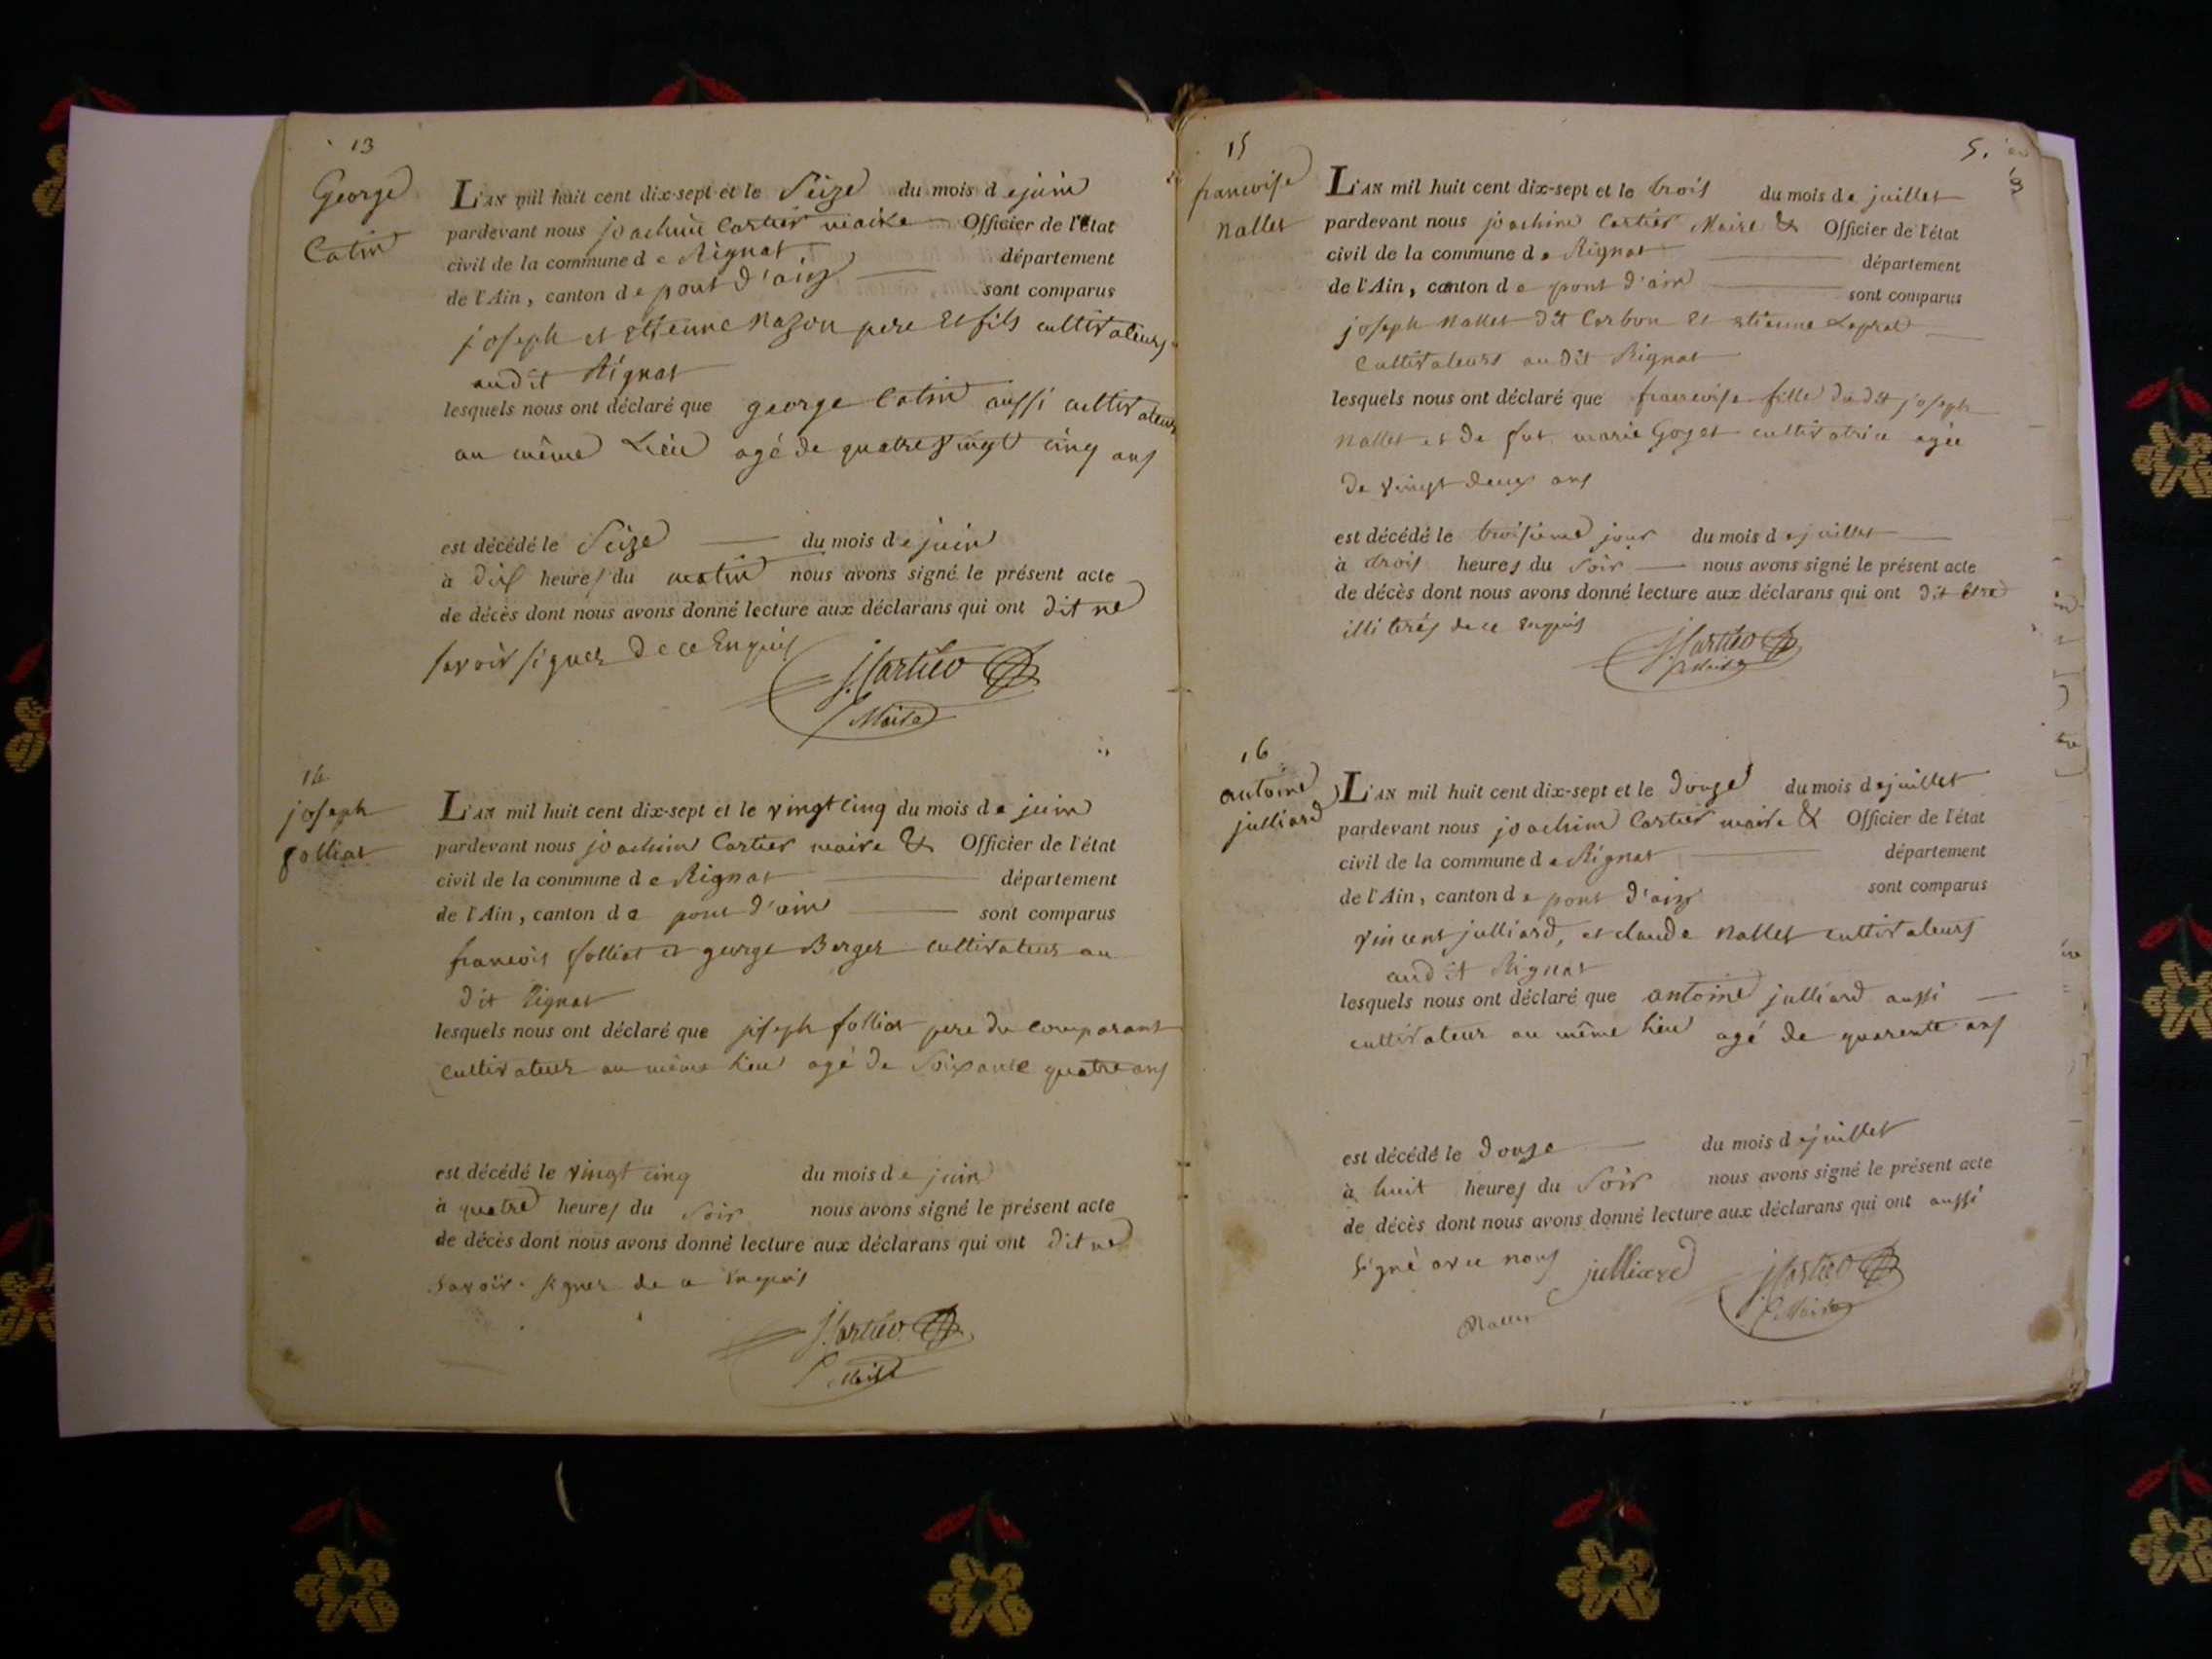 13
George
Catin
L'AN mil huit cent dix-sept et le Seize du mois de juin
pardevant nous joachim Cartier maire Officier de l'état
civil de la commune de Rignat département
de l'Ain, canton de pont d'ain sont comparus
joseph et Etienne Mazon pere et fils cultivateurs
audit Rignat
lesquels nous ont déclaré que george Catin aussi cultivateur
au même Lieu agé de quatre vingt cinq ans
est décédé le Seize du mois de juin
à dix heures du matin nous avons signé le présent acte
de décès dont nous avons donné lecture aux déclarans qui ont dit ne
savoir signer de ce Enquis
J. Cartier
Maire
14
joseph
folliat
L'AN mil huit cent dix-sept et le vingt cinq du mois de juin
pardevant nous joachim Cartier maire & Officier de l'état
civil de la commune de Rignat département
de l'Ain, canton de pont d'ain sont comparus
francois folliat et george Berger cultivateur au
dit Rignat
lesquels nous ont déclaré que joseph folliat pere du comparant
cultivateur au même lieu agé de Soixante quatre ans
est décédé le vingt cinq du mois de juin
à quatre heures du soir nous avons signé le présent acte
de décès dont nous avons donné lecture aux déclarans qui ont dit ne
savoir signer de ce enquis
J. Cartier
Maire
15
5.
francoise
Nallet
L'AN mil huit cent dix-sept et le trois du mois de juillet
pardevant nous joachim Cartier Maire & Officier de l'état
civil de la commune de Rignat département
de l'Ain, canton de pont d'ain sont comparus
joseph Nallet dit Carbon et etienne
cultivateurs audit Rignat
lesquels nous ont déclaré que francoise fille dudit joseph
Nallet et de fut marie Goyet cultivatrice agée
de vingt deux ans
est décédé le troisieme jour du mois de juillet
à trois heures du Soir nous avons signé le présent acte
de décès dont nous avons donné lecture aux déclarans qui ont dit être
illiterés de ce enquis
J. Cartier
Maire
16
antoine
julliard
L'AN mil huit cent dix-sept et le douze du mois de juillet
pardevant nous joachim Cartier maire & Officier de l'état
civil de la commune de Rignat département
de l'Ain, canton de pont d'ain sont comparus
vincent julliard, et claude Nallet cultivateurs
audit Rignat
lesquels nous ont déclaré que antoine julliard aussi
cultivateur au même lieu agé de quarente ans
est décédé le douze du mois de juillet
à huit heures du Soir nous avons signé le présent acte
de décès dont nous avons donné lecture aux déclarans qui ont aussi
signé avec nous
julliard
J. Cartier
Nallet
Maire